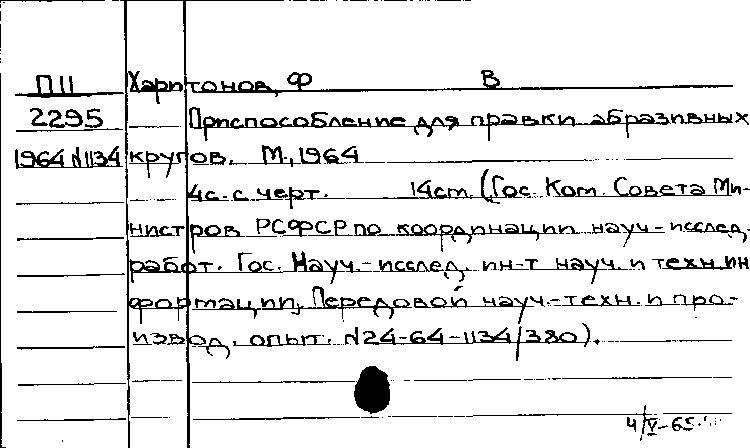 П11 Харитонов, Ф В
2295 Приспособление для правки абразивных
1964 N1134 кругов. М, 1964
4с. с черт. 14см. (Гос. Ком. Совета Ми-
нистров РСФСР по координации науч-исслед.
работ. Гос. Науч.-исслед. ин-т науч. и техн. ин
формации, Передовой науч.-техн. и про-
извод. опыт. N24-64-1134/380).
4/V-65